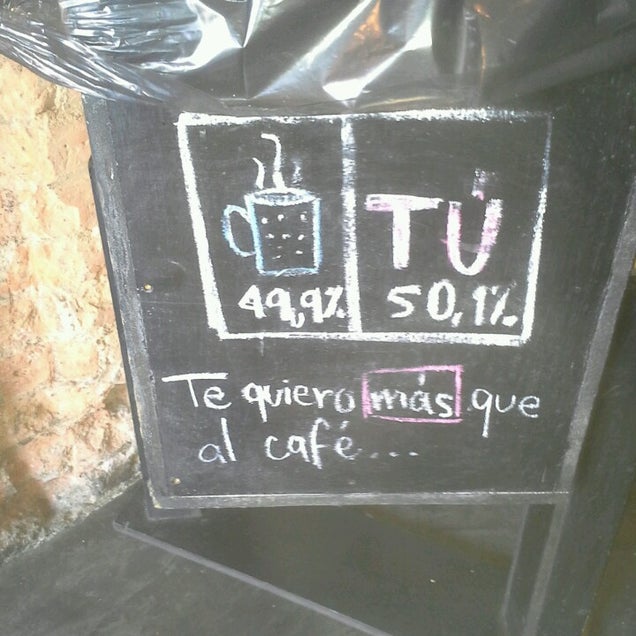 TÚ
49,9% 50,1%
Te quiero más que
al café...